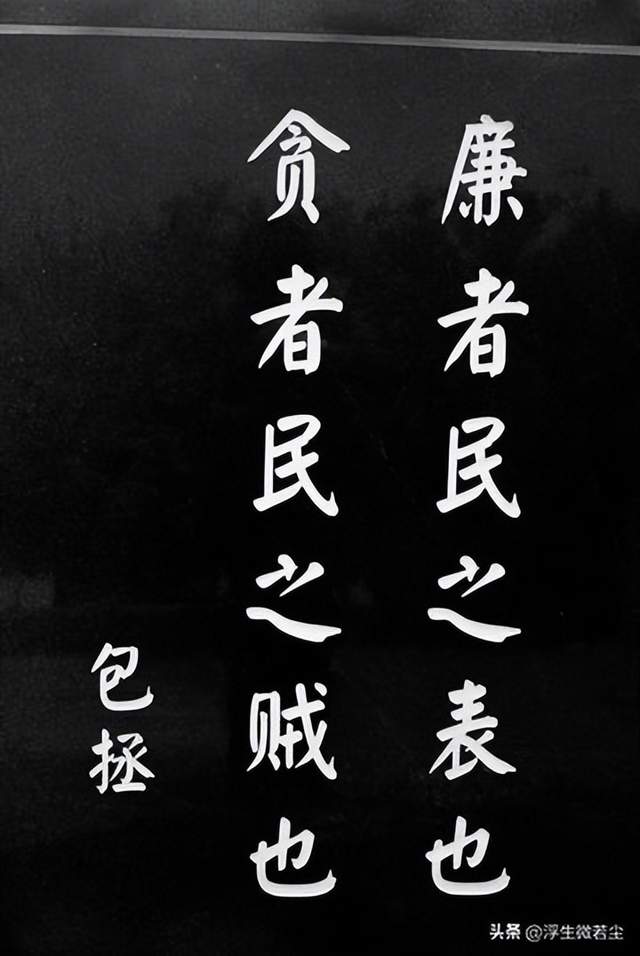 廉者民之表也
贪者民之贼也
包拯
头条 @浮生微若尘